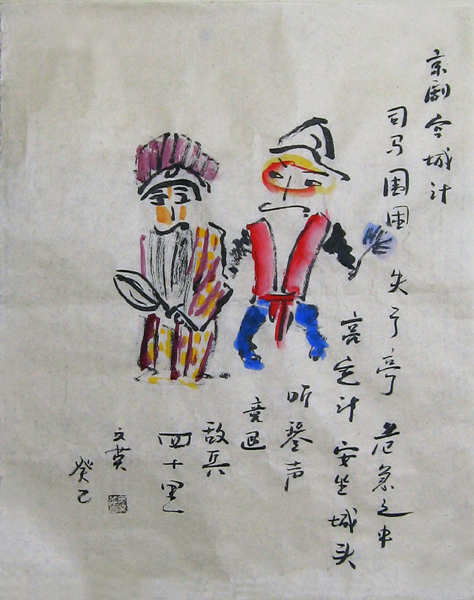 京剧空城计
司马围困 失了亭 危急之中
亮定计 安坐城头
听琴声
竟退
敌兵
四十里
文英
癸巳